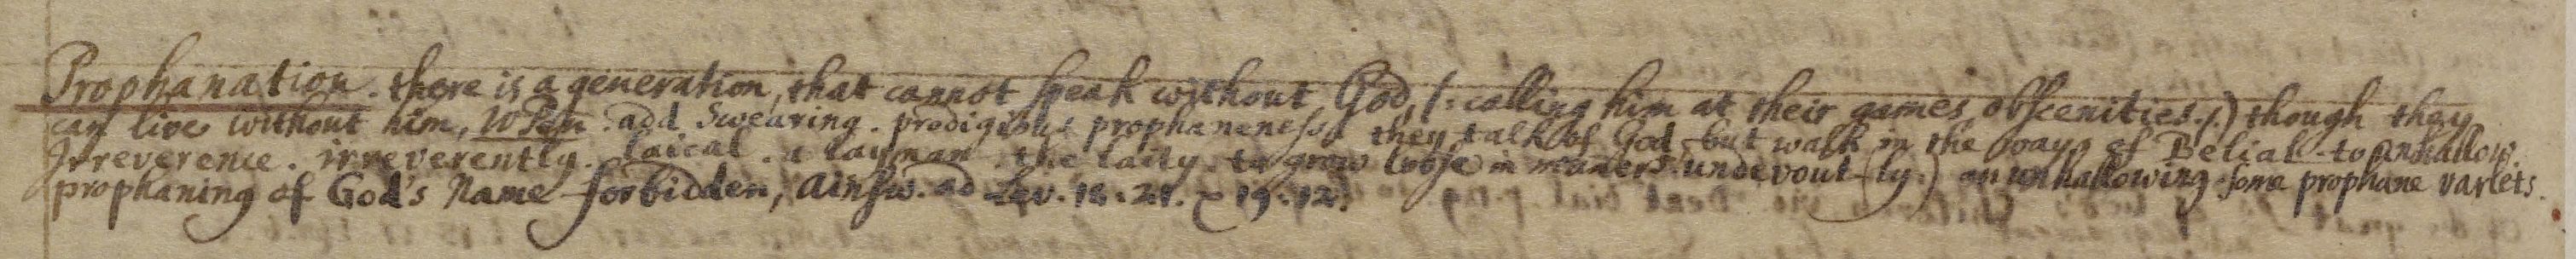 Prophanation. there is a generation, that cannot speak without God, (: calling him at their games, obscenities. :) though they
can live without him, W Pen. add Swearing. prodigious prophaneness. they talk of God but walk in the ways of Belial. to unhallow.
Irreverence. irreverently. laical. a layman. the laity. to grow loose in maners. undevout-(ly.) an unhallowing. some prophane varlets.
prophaning of God's Name forbidden, Ainsw. ad Lev. 18. 21. & 19. 12.